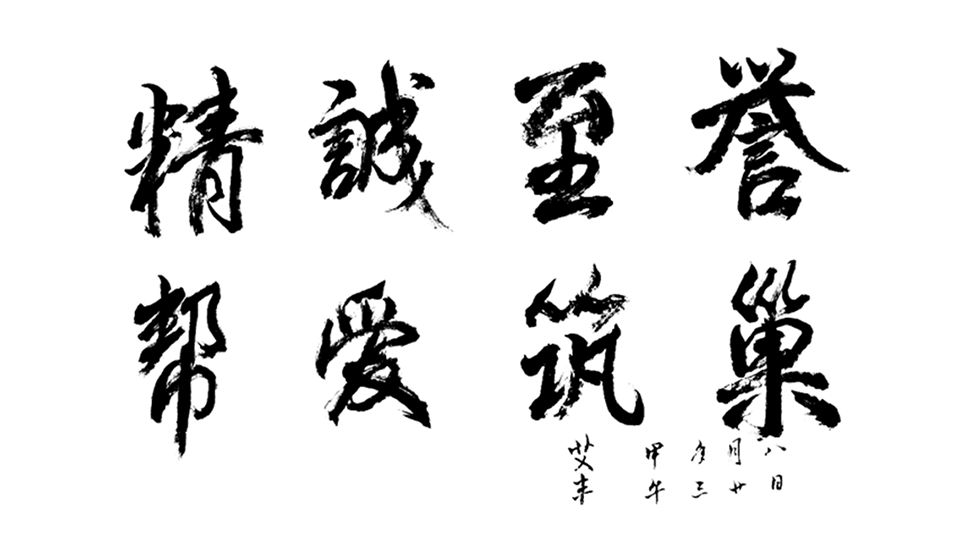 精誠至誉
帮爱筑巢
艾丰
甲午年三月廿八日